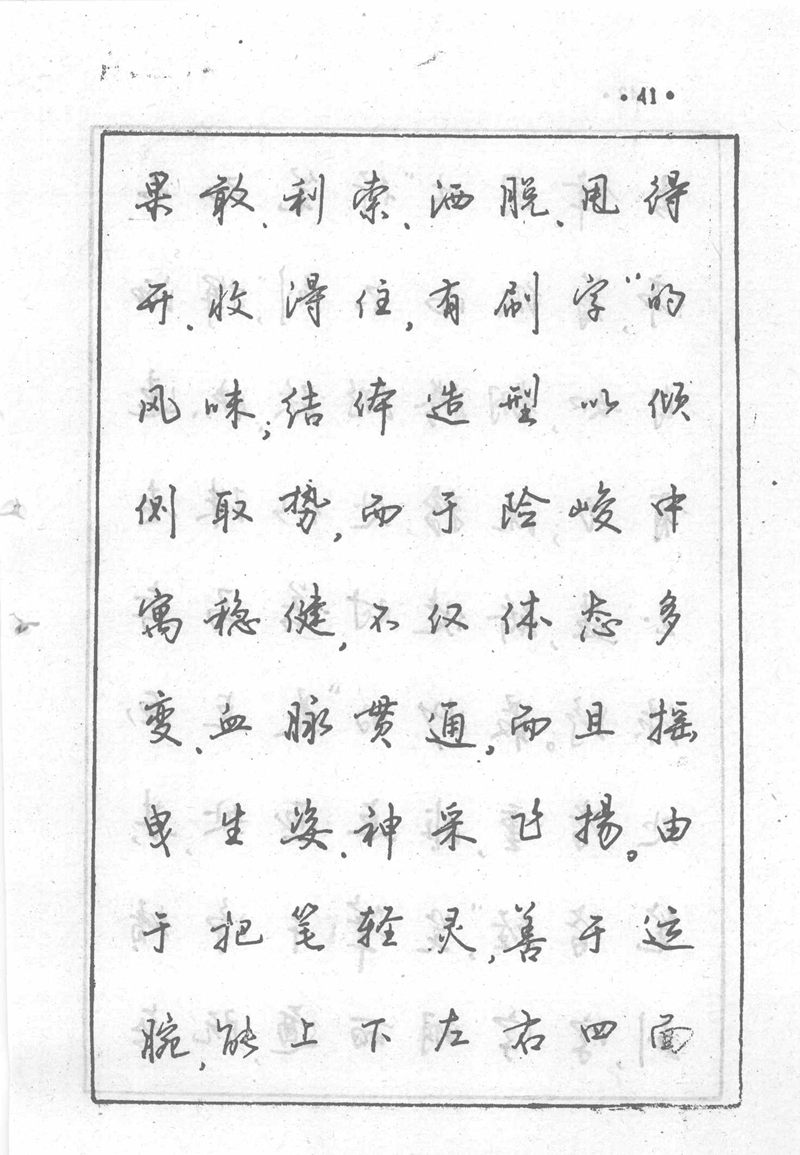 ·41·
果敢、利索、洒脱、甩得
开、收得住,有刷字”的
风味;结体造型以倾
侧取势,而于险峻中
寓稳健,不仅体态多
变、血脉贯通,而且摇
曳生姿、神采飞揚。由
于把笔轻灵,善于运
腕,能上下左右四面